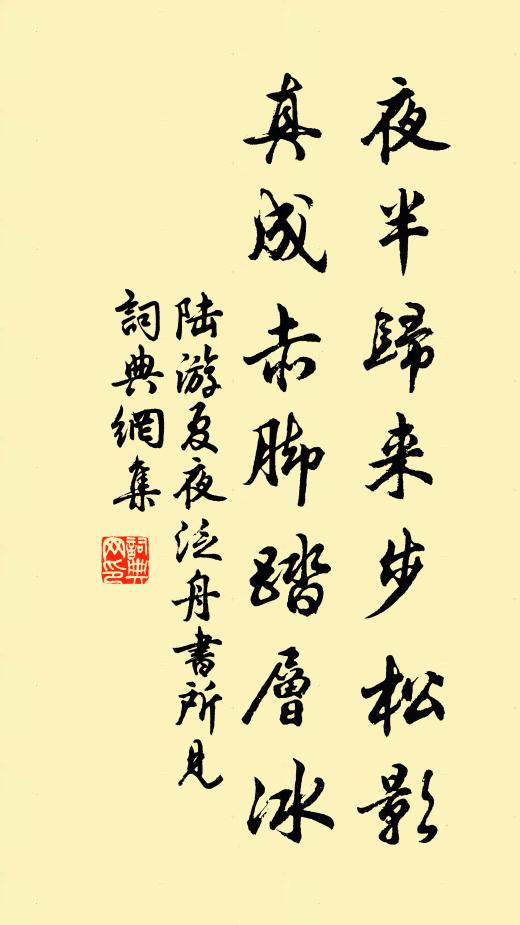 夜半歸来步松影
真成赤脚踏層冰
陆游夏夜泛舟書所見
詞典網集
詞典網印